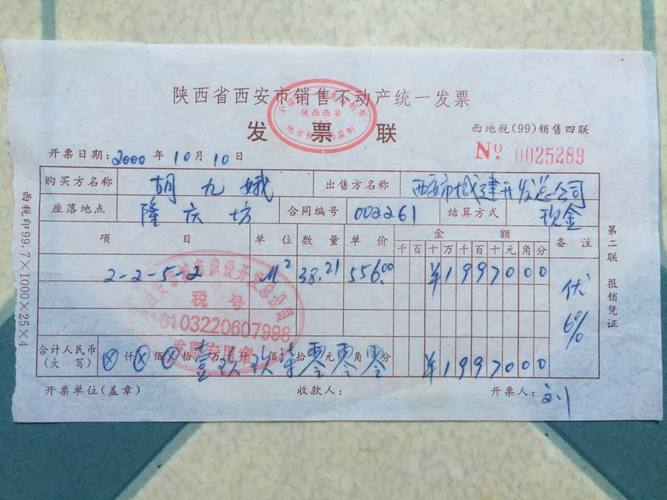 陕西省西安市销售不动产统一发票
发 票 联
陕西西安
西地税(99)销售四联
开票日期: 2000 年 10 月 10 日
No 0025289
购买方名称 胡九娥 出售方名称 西安市城建开发总公司
座落地点 隆庆坊 合同编号 002261 结算方式 现金
项 目 单位 数量 单价 金额 备注
千 百 十 万 千 百 十 元 角 分
2-2-5-2 M² 38.21 556.00 ¥1997000
6%
税号
610103220607998
合计人民币(大写) ⊗仟⊗佰⊗拾壹万玖仟玖佰柒拾零元零角零分 ¥1997000
开票单位(盖章) 收款人: 开票人: 刘
西税印99.7×1000×25×4
第二联 报销凭证